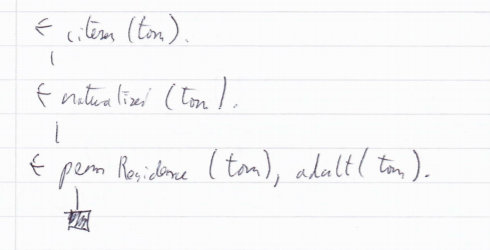 ← citizen (tom).
← naturalized (tom).
← perm Residence (tom), adult (tom).